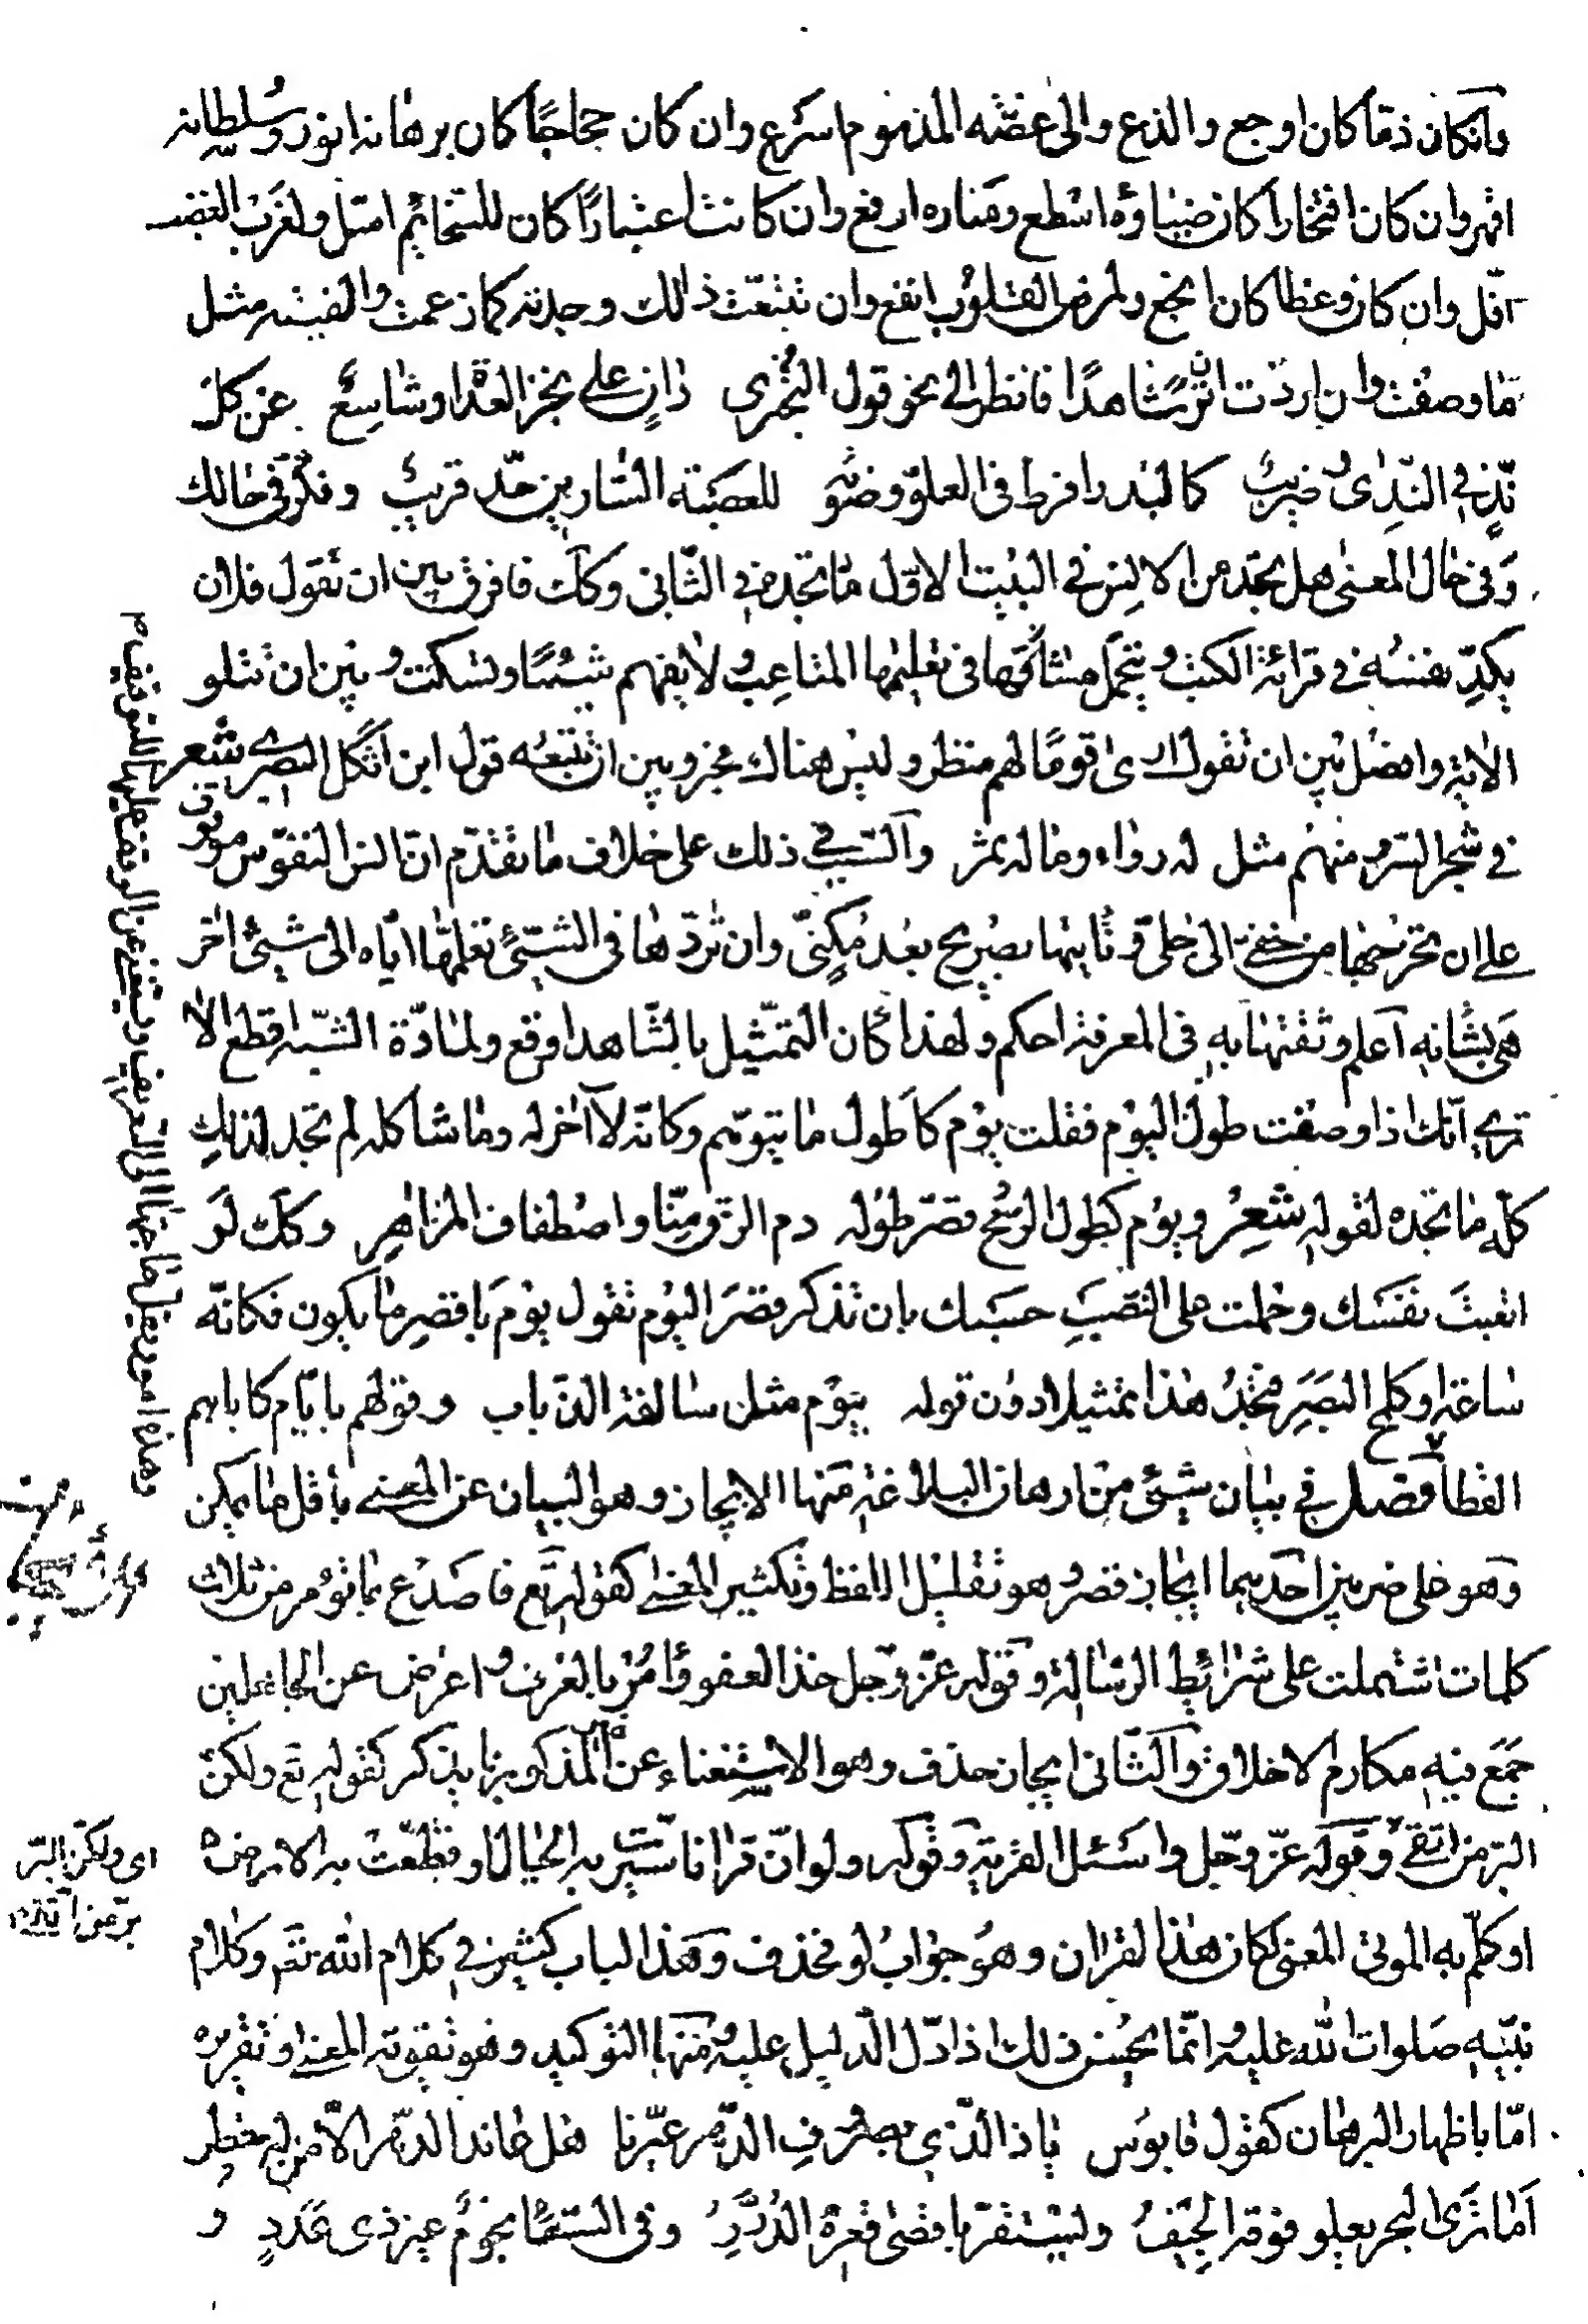 وان كان ذمّا كان اوجع والذع والى غضّه المذموم اسرع وان كان حجاجًا كان برهانه انور وسلطانه
اقهر وان كان افتخارا كان ضياؤه اسطع ومناره ارفع وان كانت اعتذارًا كان للسّخائم امثل ولغرب الغضب
افلّ وان كان وعظا كان انجع ولمرض القلوب انفع وان تتبّعت ذلك وجدته كما زعمت والفيته مثل
ما وصفت وان اردت شاهدًا فانظر الى نحو قول البحتري دانٍ على نجز العداة وشاسعٌ عن كلّ
ندٍّ في النّدى وضريبٍ كالبدر افرط فى العلوّ وضوئه للعصبة السّارين حدّ قريبٍ وفكّر فى حالك
وفى حال المعنى هل تجد من الانس فى البيت الاوّل ما تجده فى الثّانى وكك فافرق بين ان تقول فلان
يكدّ نفسه فى قرائة الكتب ويتحمّل مشاقّها فى تعليمها المتاعب ولا يفهم شيئًا وتسكت وبين ان تتلو
الاية وافصل بين ان تقول ارى قومًا لهم منظر وليس هناك مخبر وبين ان تتبعه قول ابن لنكك البصرى شعر
فى شجر السّرو منهم مثل له رواء وماله ثمر والسّبب فى ذلك على خلاف ما تقدّم انّ انس النّفوس موقوف
على ان تخرجها من خفىّ الى جلىّ وتاتيها بصريح بعد مكنّى وان تردّها فى الشّيئ تعلّمها ايّاه الى شيئ اخر
هى بشانه اعلم وثقتها به فى المعرفة احكم ولهذا كان التّمثيل بالشّاهد اوقع ولمادّة الشّبه اقطع الا
ترى انّك اذا وصفت طول اليوم فقلت يوم كاطول ما يتوهّم وكانّه لا آخر له وما شاكله لم تجد لذلك
كلّه ما تجده لقوله شعر ويوم كظلّ الرّمح قصّر طوله دم الزّقّ منّا واصطفاف المزاهر وكك لو
اتعبت نفسك وحملت على النّصب حسبك بان تذكر قصر اليوم تقول يوم باقصر ما يكون فكانّه
ساعة او كلمح البصر فتجد هذا تمثيلا دون قوله بيوم مثل سالفة الذّباب وقولهم بايّام كاباهم
القطا فصل فى بيان شيئ من ارهان البلاغة منها الايجاز وهو البيان عن المعنى باقلّ ما يمكن
وهو على ضربين احديهما ايجاز قصر وهو تقليل اللفظ وتكثير المعنى كقوله تع فاصدع بما تؤمر من ثلاث
كلمات اشتملت على شرائط الرّسالة وقوله عزّ وجلّ خذ العفو وأمر بالعرف واعرض عن الجاهلين
جمع فيه مكارم الاخلاق والثّانى ايجاز حذف وهو الاستغناء عن المذكور بما يذكر كقوله تع ولكنّ
البرّ من اتّقى وقوله عزّ وجلّ واسئل القرية وقوله ولو انّ قرانا سيّرت به الجبال او قطّعت به الارض
او كلّم به الموتى المعنى لكان هذا القران وهو جواب لو فحذف وهذا الباب كثير فى كلام الله تع وكلام
نبيّه صلوات الله عليه وانّما يحسن ذلك اذا دلّ الدّليل عليه ومنها التوكيد وهو تقوية المعنى وتقريره
امّا باظهار البرهان كقول قابوس يا ذا الّذى بصروف الدّهر عيّرنا هل عاند الدّهر الّا من له خطر
اما ترى البحر يعلو فوقه الجيف وليستقرّ باقصى قعره الدّرر وفى السّماء نجوم غير ذى عدد و
وهذه امور يجلّ ما جهنا الى التّعريف ويستغنى عن الوقف عليها للتوقيف
اى ولكنّ البرّ
برّ من اتّقى